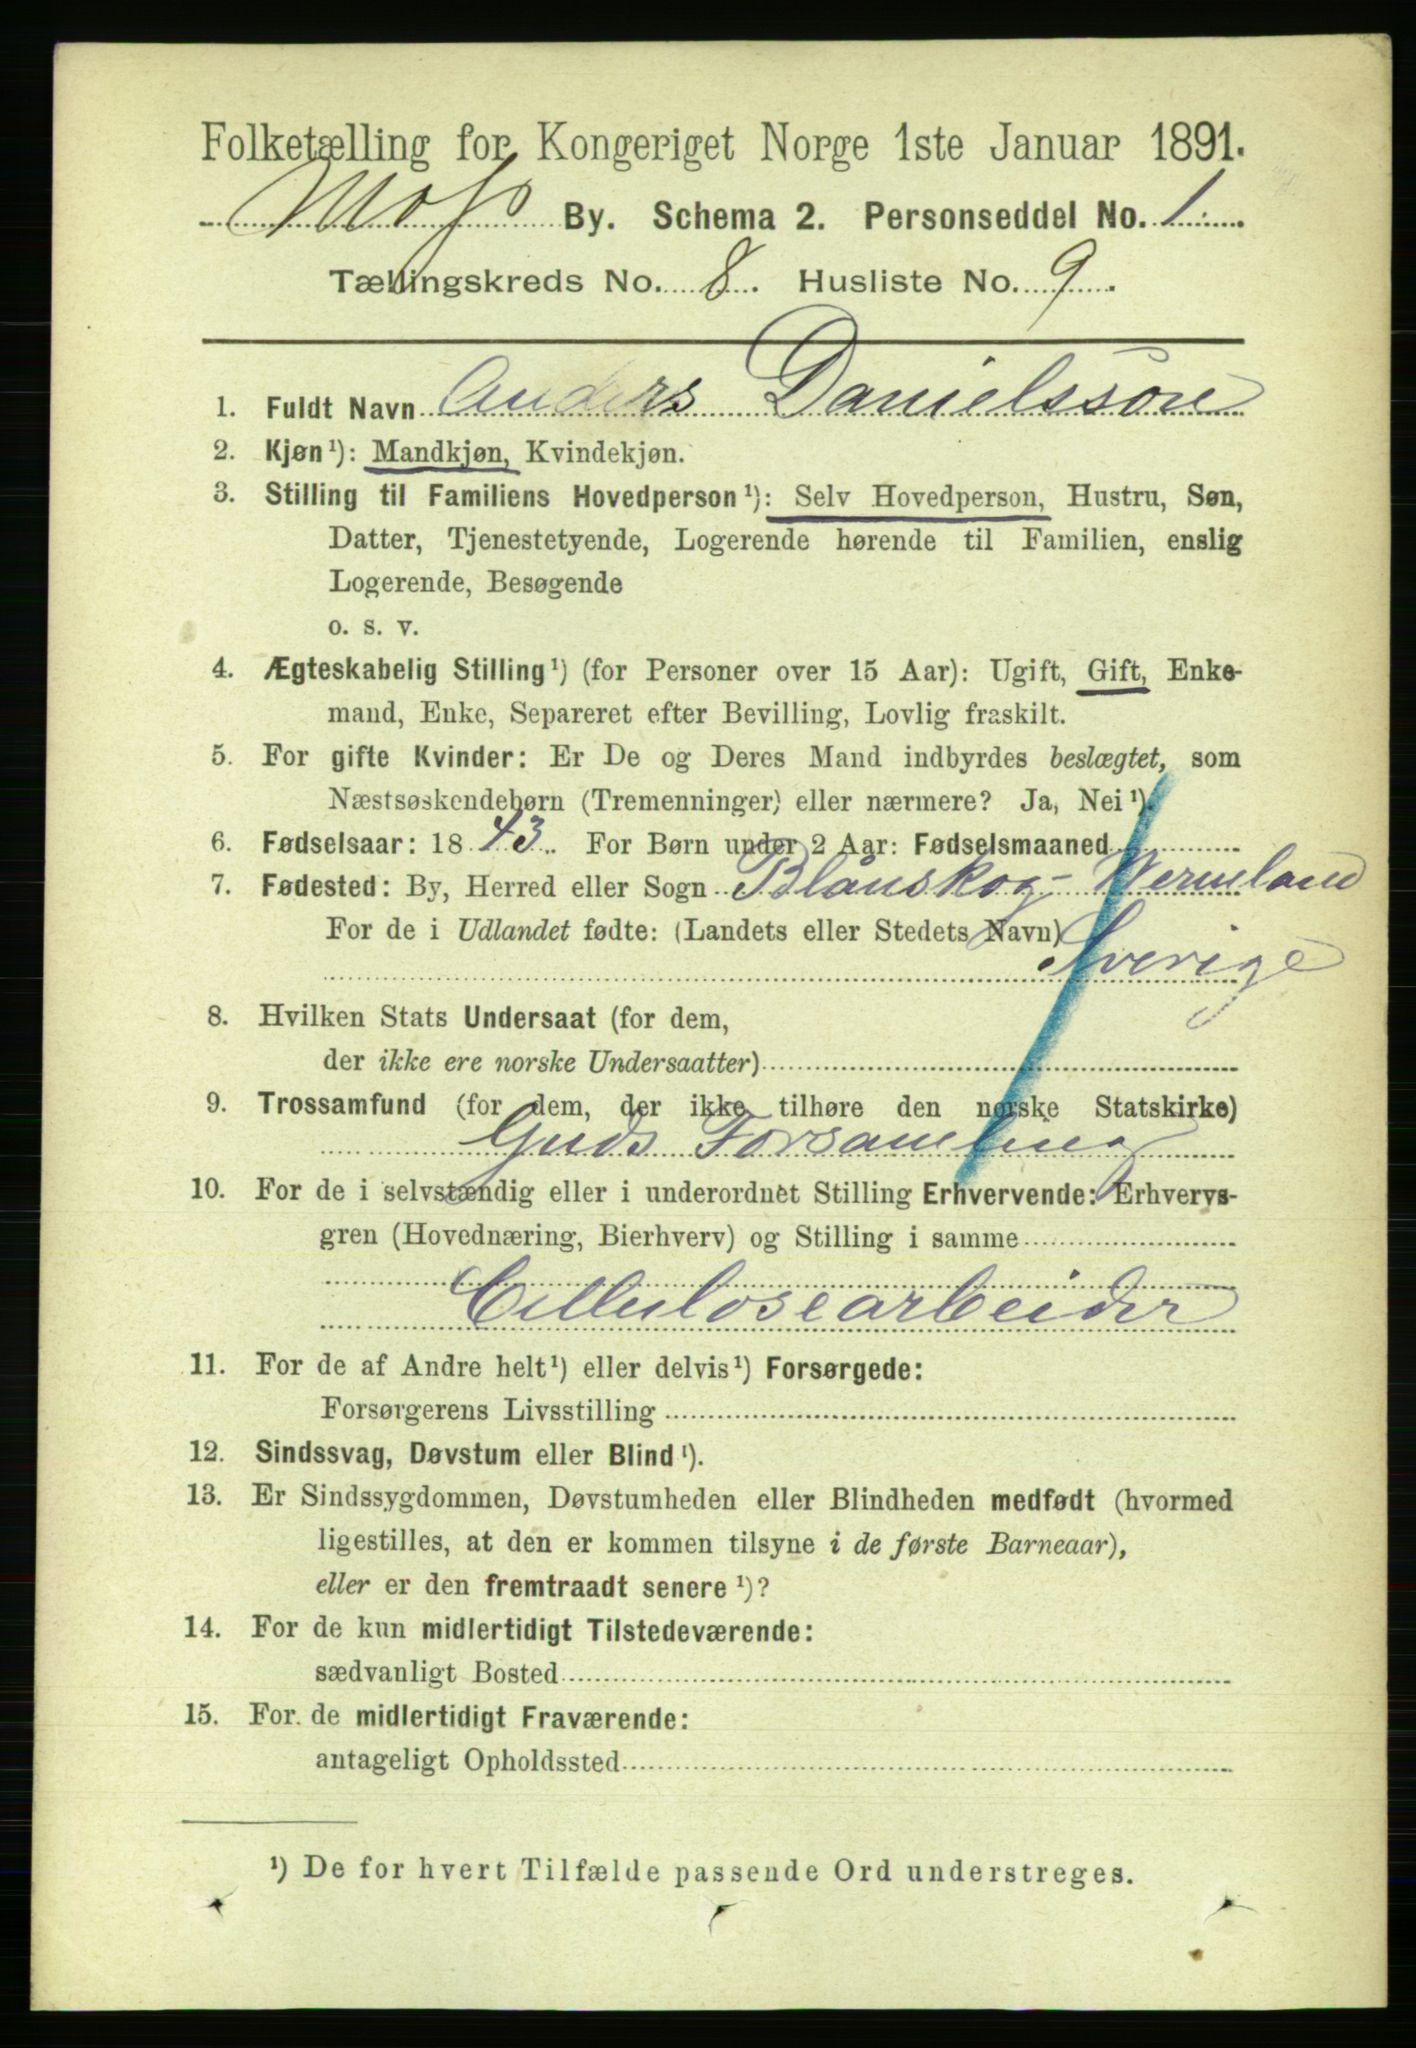 Folketælling for Kongeriget Norge 1ste Januar 1891.
Moss By. Schema 2. Personseddel No. 1.
Tællingskreds No. 8. Husliste No. 9.
1. Fuldt Navn Anders Danielsson
2. Kjøn¹): Mandkjøn, Kvindekjøn.
3. Stilling til Familiens Hovedperson¹): Selv Hovedperson, Hustru, Søn,
Datter, Tjenestetyende, Logerende hørende til Familien, enslig
Logerende, Besøgende
o. s. v.
4. Ægteskabelig Stilling¹) (for Personer over 15 Aar): Ugift, Gift, Enke-
mand, Enke, Separeret efter Bevilling, Lovlig fraskilt.
5. For gifte Kvinder: Er De og Deres Mand indbyrdes beslægtet, som
Næstsøskendebørn (Tremenninger) eller nærmere? Ja, Nei¹).
6. Fødselsaar: 1843. For Børn under 2 Aar: Fødselsmaaned
7. Fødested: By, Herred eller Sogn Blånskog - Wermland
For de i Udlandet fødte: (Landets eller Stedets Navn)
Sverige
8. Hvilken Stats Undersaat (for dem,
der ikke ere norske Undersaatter)
9. Trossamfund (for dem, der ikke tilhøre den norske Statskirke)
Guds Forsamling
10. For de i selvstændig eller i underordnet Stilling Erhvervende: Erhvervs-
gren (Hovednæring, Bierhverv) og Stilling i samme
Cellulosearbeider
11. For de af Andre helt¹) eller delvis¹) Forsørgede:
Forsørgerens Livsstilling
12. Sindssvag, Døvstum eller Blind¹).
13. Er Sindssygdommen, Døvstumheden eller Blindheden medfødt (hvormed
ligestilles, at den er kommen tilsyne i de første Barneaar),
eller er den fremtraadt senere¹)?
14. For de kun midlertidigt Tilstedeværende:
sædvanligt Bosted
15. For de midlertidigt Fraværende:
antageligt Opholdssted
¹) De for hvert Tilfælde passende Ord understreges.